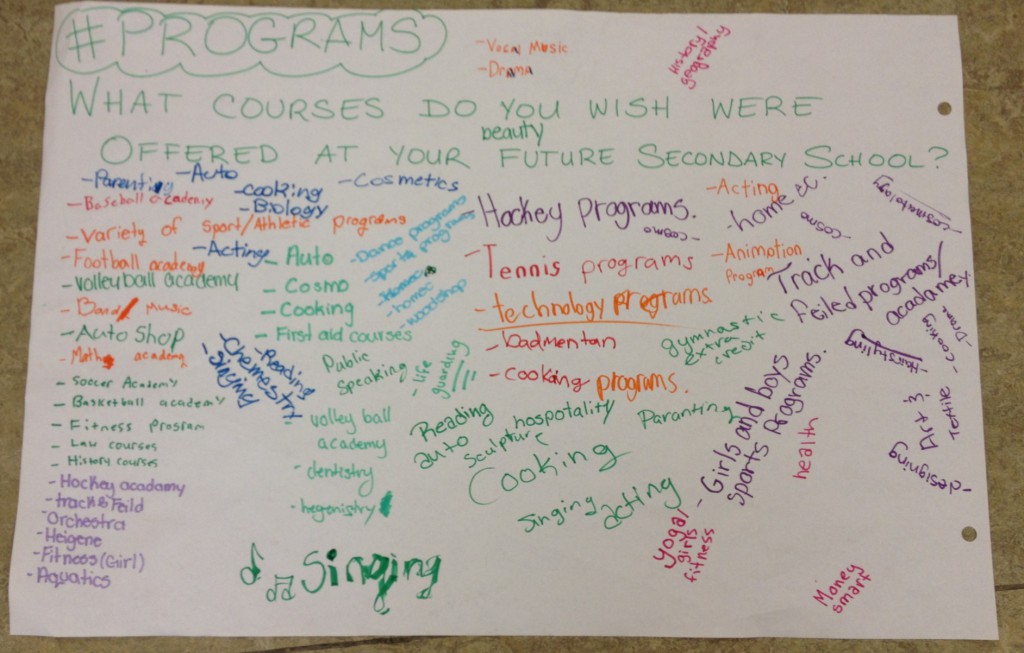 #PROGRAMS
- Vocal Music
- Drama
History/
geography
WHAT COURSES DO YOU WISH WERE
beauty
OFFERED AT YOUR FUTURE SECONDARY SCHOOL?
- Parenting
- Auto
- cooking
- Biology
- Cosmetics
- Baseball academy
- Variety of Sport/Athletic programs
- Football academy
- Acting
- volleyball academy
- Band/ Music
- Auto Shop
- Math academy
- Soccer Academy
- Basketball academy
- Fitness Program
- Law courses
- History courses
- Hockey acadamy
- track & Feild
- Orchestra
- Heigene
- Fitness (Girl)
- Aquatics
- Auto
- Cosmo
- Cooking
- First aid courses
- Reading
- Chemestry
- Singing
Public
Speaking
- life
guarding
volley ball
academy
- dentistry
- hegenistry
Singing
- Dance programs
- Sports programs
- Homec
- homec
- woodshop
- Hockey Programs.
- cosmo
- Tennis programs
- technology programs
- badmentan
- cooking programs.
gymnastic
extra
credit
Reading
auto
sculpture
hospotality
Paranting
Cooking
singing
acting
- Acting
- home ec.
cosmo
- cosmotology
- Animotion
Program
- Track and
Feiled programs/
acadamey.
- Hairstyling
- Drama
- Cooking
- Girls and boys
sports Programs.
health
Art &
Textile
- designing
yoga/
girls
fitness
Money
smart